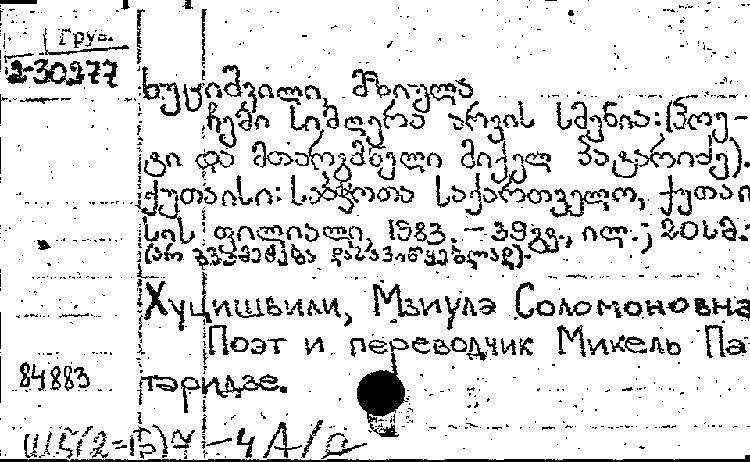 Груз.
2-30977
ხუციშვილი, მზიულა
ჩემი სიმღერა არვის სმენია: (პოე-
ტი და მთარგმნელი მიქელ პატარიძე).
ქუთაისი: საბჭოთა საქართველო, ქუთაი
სის ფილიალი, 1983. – 39გვ., ილ.; 20სმ.
(არ დასავიწყებლად).
Хуцишвили, Мзиула Соломоновна
Поэт и переводчик Микель Па-
84883 таридзе.
Ш5(2=Г)7-4 А/а